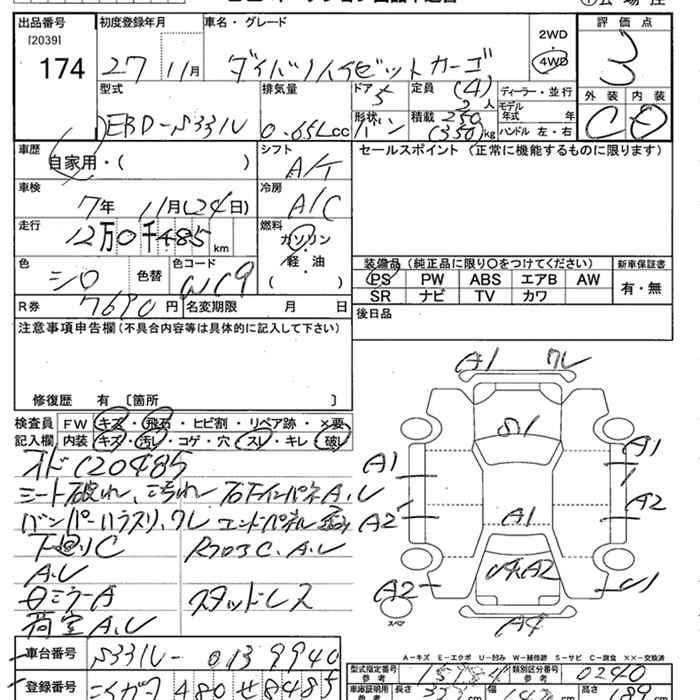 出品番号
[2039]
174
初度登録年月
27 11月
車名・グレード
ダイハツハイゼットカーゴ
2WD
4WD
評価点
3
外装 内装
C D
型式
EBD-S331V
排気量
0.65L cc
ドア
5
定員
(4)
2人
形状
バン
積載
250
(350)kg
ディーラー・並行
モデル
年式 年
ハンドル 左・右
車歴
自家用・( )
シフト
A/T
セールスポイント(正常に機能するものに限ります)
車検
7年 11月(24日)
冷房
A/C
走行
12万0千485km
燃料
ガソリン
・軽・油
( )
色
シロ
色替
色コード
WC9
R券
7690円
名変期限 月 日
装備品(純正品に限り○をつけてください)
PS PW ABS エアB AW
SR ナビ TV カワ
新車保証書
有・無
後日品
注意事項申告欄(不具合内容等は具体的に記入して下さい)
修復歴 有〔箇所 〕
検査員
記入欄
FW キズ・飛石・ヒビ割・リペア跡・×要
内装 キズ・汚れ・コゲ・穴・スレ・キレ・破れ
オド120485
シート破れ、汚れ
バンパーハラスリ、ワレ
下廻りC
A.U
ロミラーA
荷室A.U
スタッドレス
A1 ワレ
S1
A1
A1
A1
A2
A2
A2
U1
A4
スペア
A-キズ E-エクボ U-凹み W-補修跡 S-サビ C-腐食 ××-交換済
車台番号
S331V-0139940
登録番号
480せ8485
型式指定番号
参考
類別区分番号
参考
0240
車庫証明用
参考
長さ
幅
高さ